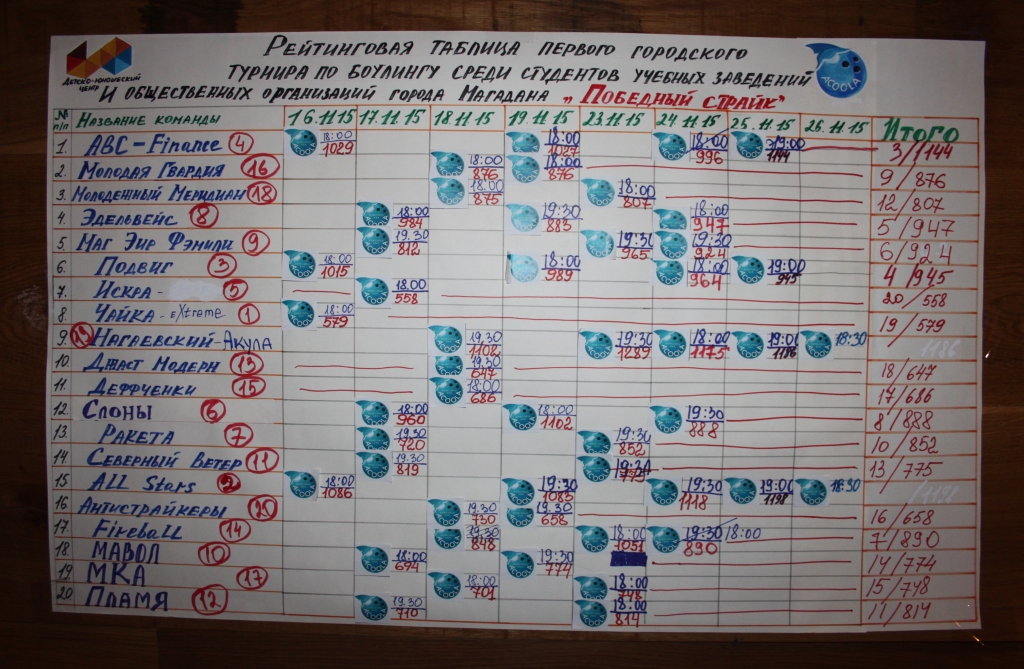 Рейтинговая таблица первого городского
Детско-юношеский центр
турнира по боулингу среди студентов учебных заведений
и общественных организаций города Магадана „Победный страйк"
ACOOLA
№ п/п Название команды 16.11.15 17.11.15 18.11.15 19.11.15 23.11.15 24.11.15 25.11.15 26.11.15 Итого
1. ABC-Finance 4 18:00 1029 18:00 1027 18:00 996 19:00 1144 3/1144
2. Молодая Гвардия 16 18:00 876 18:00 876 9/876
3. Молодежный Меридиан 18 18:00 875 18:00 807 12/807
4. Эдельвейс 8 18:00 984 19:30 883 18:00 947 5/947
5. Маг Эир Фэмили 9 19.30 812 19:30 965 19:30 924 6/924
6. Подвиг 3 18:00 1015 18:00 989 18:00 964 19:00 945 4/945
7. Искра - 5 18.00 558 20/558
8. Чайка - eXtreme 1 18:00 579 19/579
9. Нагаевский-Акула 19.30 1102 19:30 1289 18:00 1175 19:00 1186 18:30 /1186
10. Джаст Модерн 13 19.30 647 18/647
11. Деффченки 15 18:00 686 17/686
12. Слоны 6 18:00 960 18:00 1102 19:30 888 8/888
13. Ракета 7 19.30 720 19:30 852 10/852
14. Северный Ветер 11 19.30 819 19:30 775 13/775
15 All Stars 2 18:00 1086 19:30 1083 19:30 1118 19:00 1191 18:30 /1191
16. Антистрайкеры 20 19.30 730 19.30 658 16/658
17. Fireball 14 19.30 848 18:00 1051 19:30 18:00 890 7/890
18 МАВОЛ 10 18:00 694 19:30 774 14/774
19. МКА 17 18:00 701 18:00 748 15/748
20. Пламя 12 19.30 710 18:00 814 11/814